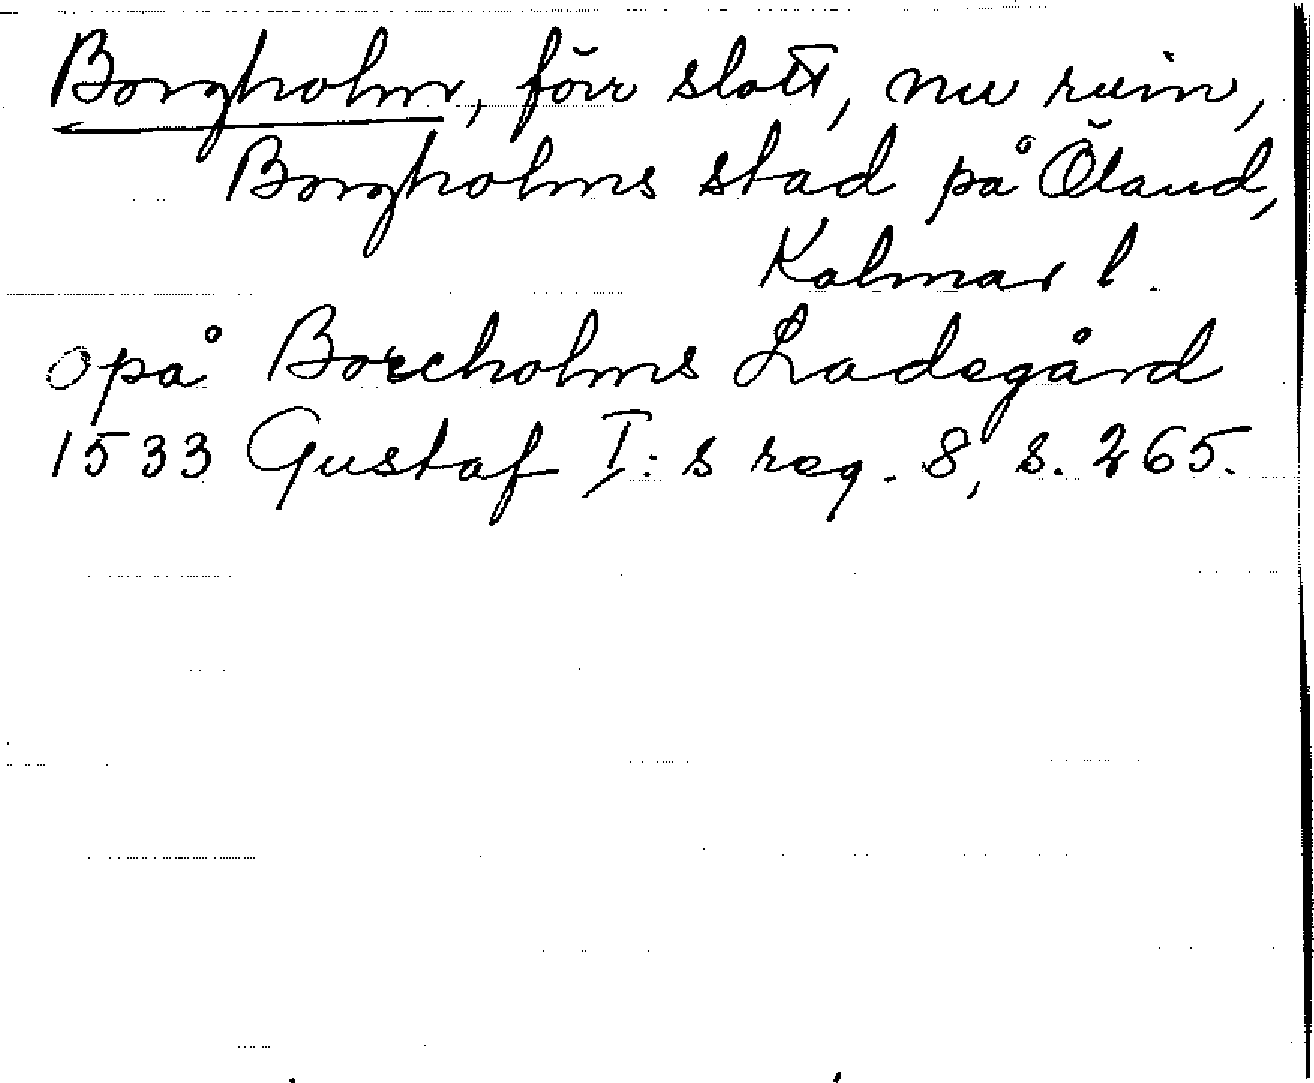 Borgholm, förr slott, nu ruin,
Borgholms stad på Öland,
Kalmar l.
opå Borcholms Ladegård
1533 Gustaf I:s reg. 8, s. 265.